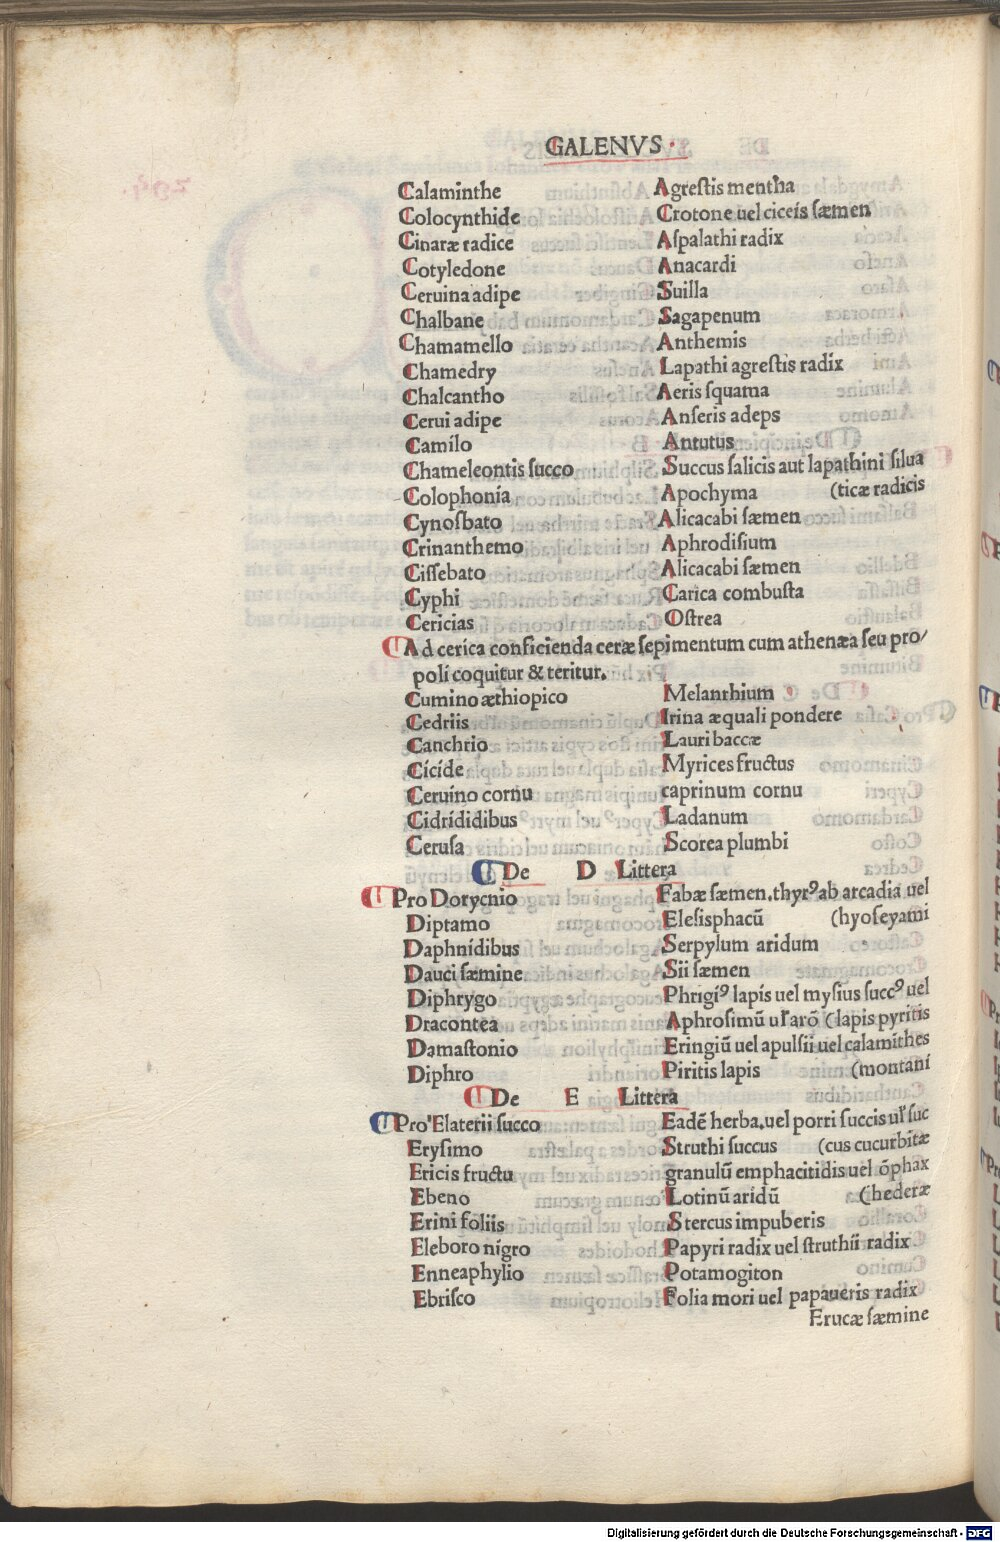 GALENVS
Calaminthe Agrestis mentha
Colocynthide Crotone uel ciceis sæmen
Cinaræ radice Aspalathi radix
Cotyledone Anacardi
Ceruina adipe Suilla
Chalbane Sagapenum
Chamamello Anthemis
Chamedry Lapathi agrestis radix
Chalcantho Aeris squama
Cerui adipe Anseris adeps
Camilo Antutus
Chameleontis succo Succus salicis aut lapathini silua
Colophonia Apochyma (ticæ radicis
Cynosbato Alicacabi sæmen
Crinanthemo Aphrodisium
Cissebato Alicacabi sæmen
Cyphi Carica combusta
Cericias Ostrea
Ad cerica conficienda ceræ sepimentum cum athenæa seu pro/
poli coquitur & teritur.
Cumino æthiopico Melanthium
Cedriis Irina æquali pondere
Canchrio Lauri baccæ
Cicide Myrices fructus
Ceruino cornu caprinum cornu
Cidrididibus Ladanum
Cerusa Scorea plumbi
De D Littera
Pro Dorycnio Fabæ sæmen.thyrꝰ ab arcadia uel
Diptamo Elesisphacū (hyoseyami
Daphnidibus Serpylum aridum
Dauci sæmine Sii sæmen
Diphrygo Phrigiꝰ lapis uel mysius succꝰ uel
Dracontea Aphrosimū ul' arō (lapis pyritis
Damastonio Eringiū uel apulsii uel calamithes
Diphro Piritis lapis (montani
De E Littera
Pro Elaterii succo Eadē herba.uel porri succis ul' suc
Erysimo Struthi succus (cus cucurbitæ
Ericis fructu granulū emphacitidis uel ōphax
Ebeno Lotinū aridū (hederæ
Erini foliis Stercus impuberis
Eleboro nigro Papyri radix uel struthii radix
Enneaphylio Potamogiton
Ebrisco Folia mori uel papaueris radix
Erucæ sæmine
Digitalisierung gefördert durch die Deutsche Forschungsgemeinschaft - DFG